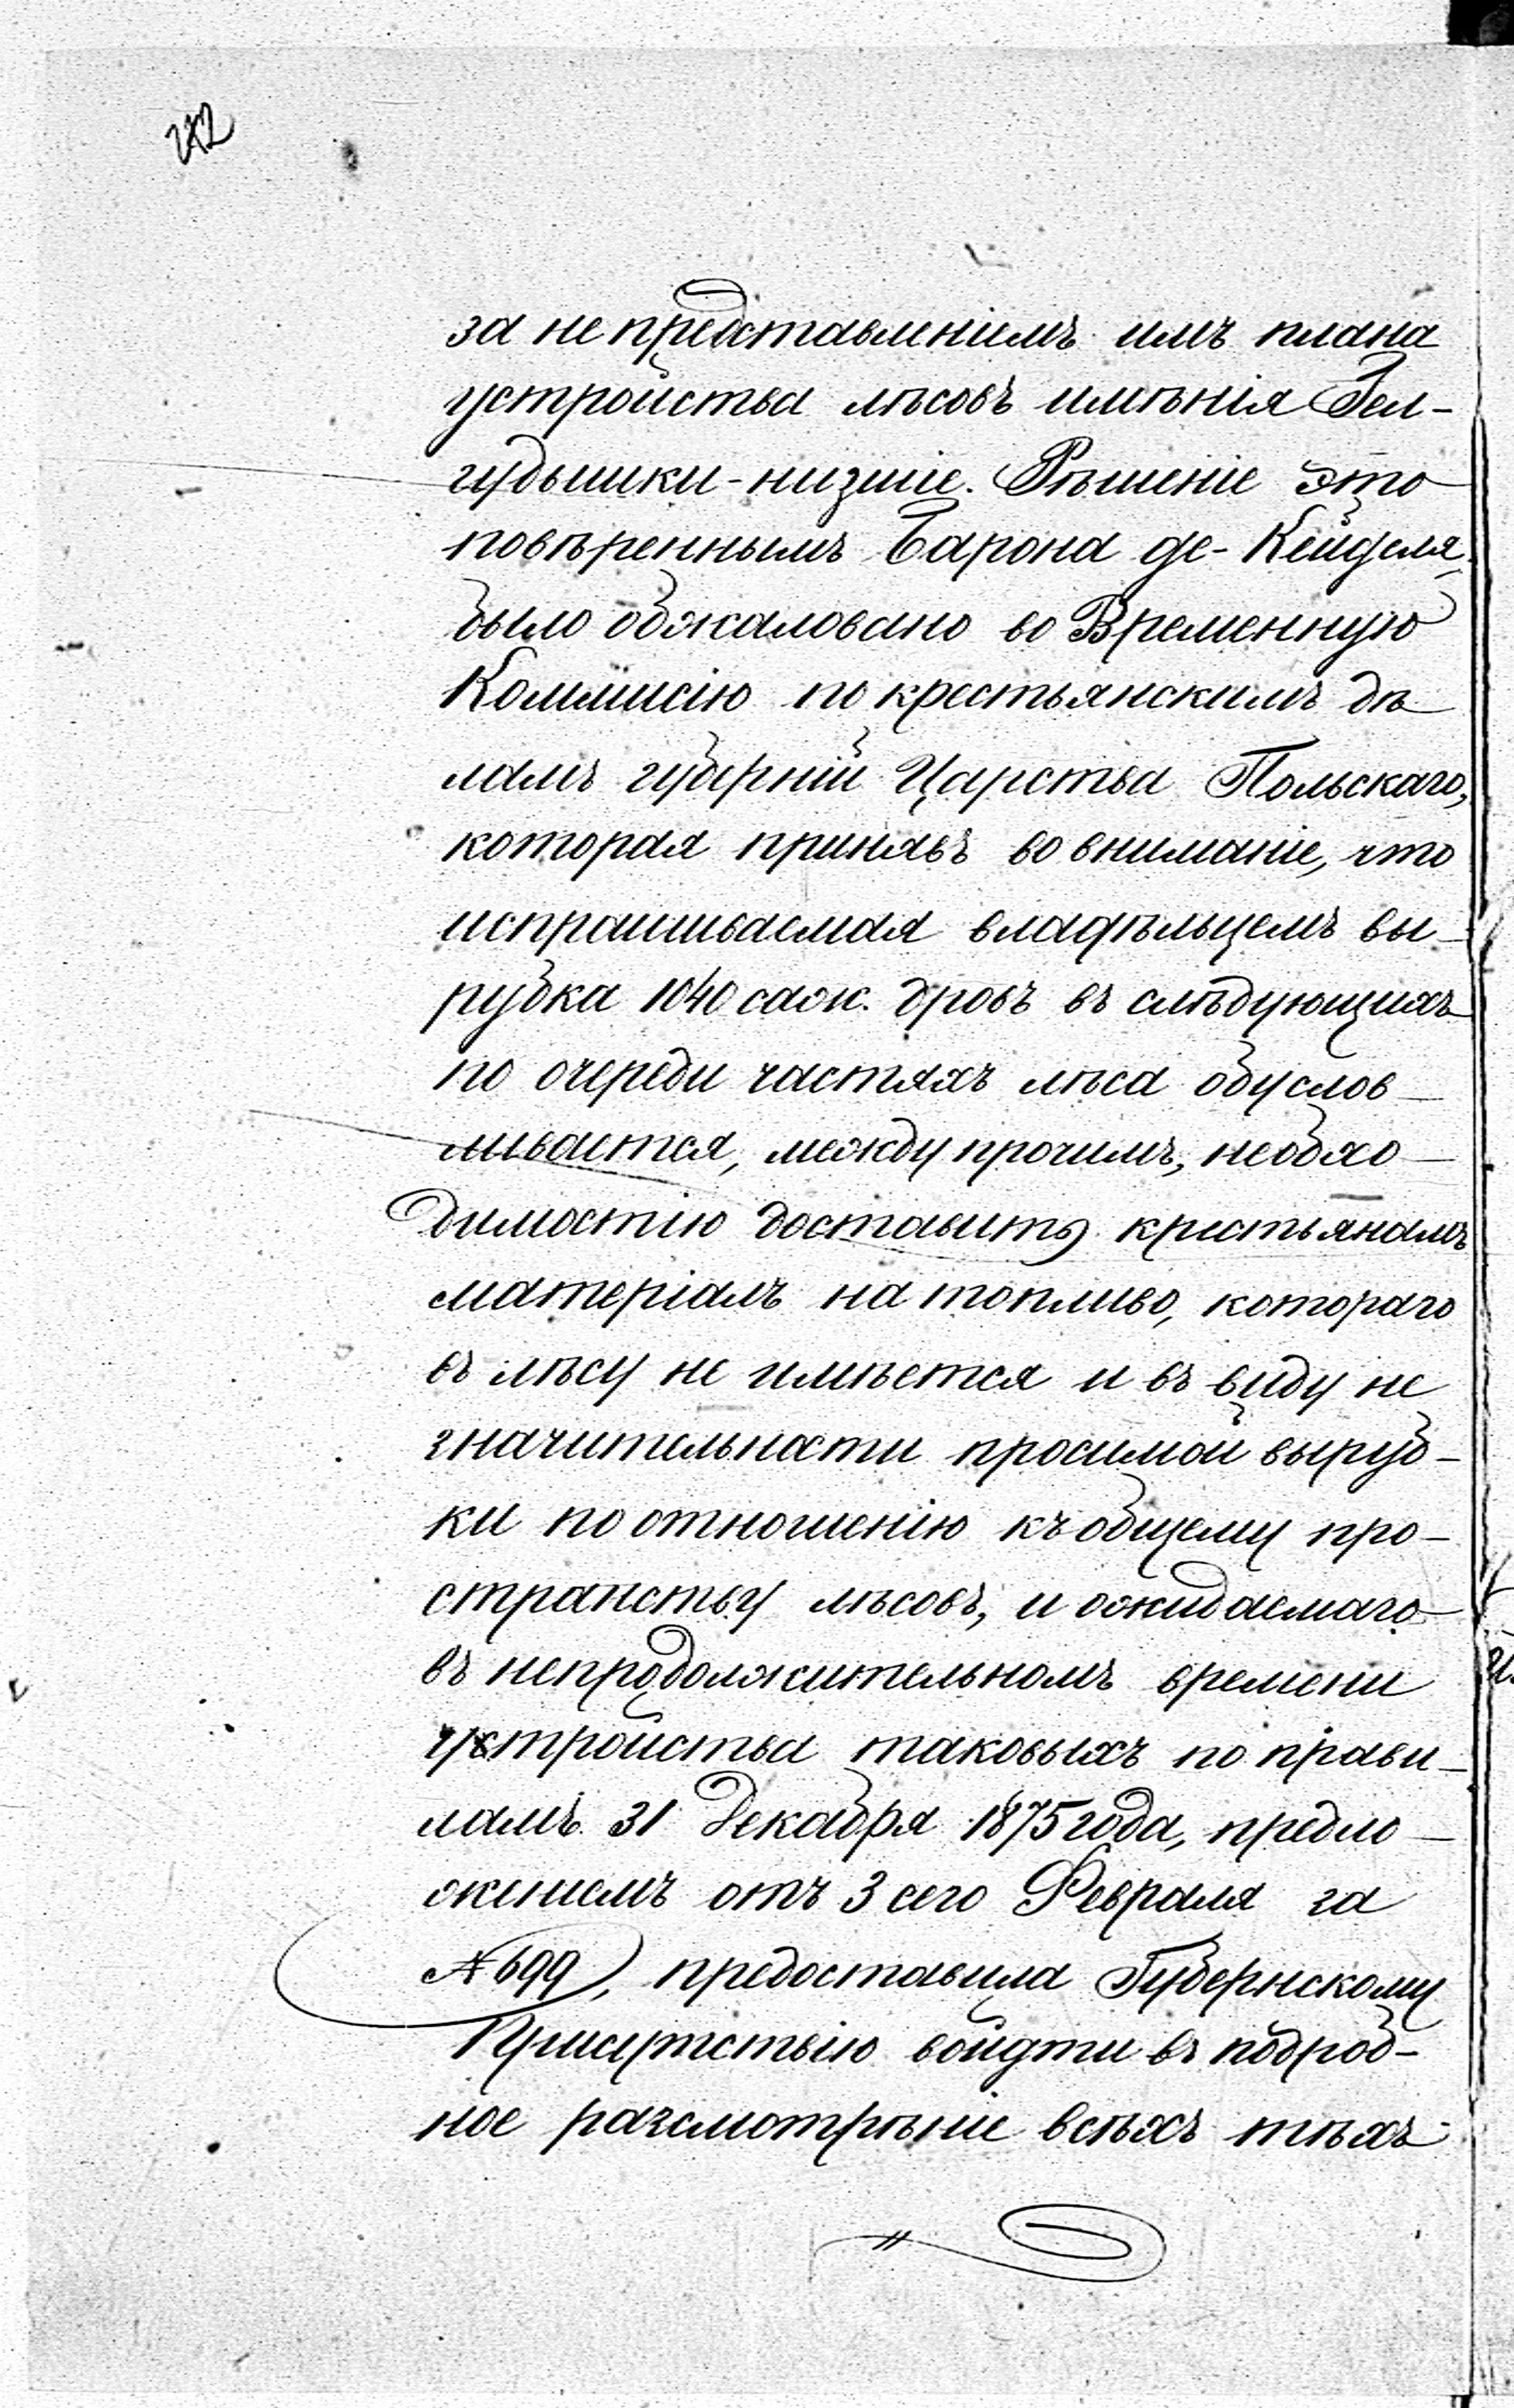 за не представленіемъ имъ плана
устройства лѣсовъ имѣнія Гел-
гудышки-низшіе. Рѣшеніе это
повѣреннымъ Барона де-Кейделя,
было обжаловано во Временную
Коммисію по крестьянскимъ дѣ
ламъ губерній Царства Польскаго,
которая принявъ во вниманіе, что
испрашиваемая владѣльцемъ вы-
рубка 1040 саж. дровъ въ слѣдующихъ
по очереди частяхъ лѣса обуслов-
ливается, между прочимъ, необхо-
димостію доставить крестьянамъ
матеріалъ на топливо, котораго
въ лѣсу не имѣется и въ виду не
значительности просимой выруб-
ки по отношенію къ общему про-
странству лѣсовъ, и ожидаемаго
въ непродолжительномъ времени
устройства таковыхъ по прави-
ламъ 31 Декабря 1875 года, предло-
женіемъ отъ 3 сего Февраля за
№ 699, предоставила Губернскому
Присутствію войдти въ подроб-
ное разсмотрѣніе всѣхъ тѣхъ